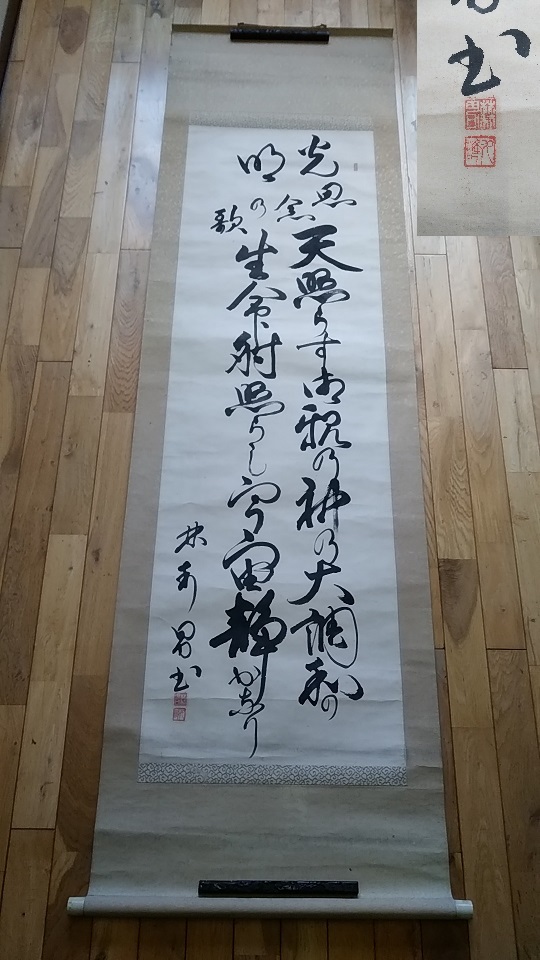 光明
思念の歌
天照らす御親の神の大調和の
生命射照らし宇宙静かなり
男書